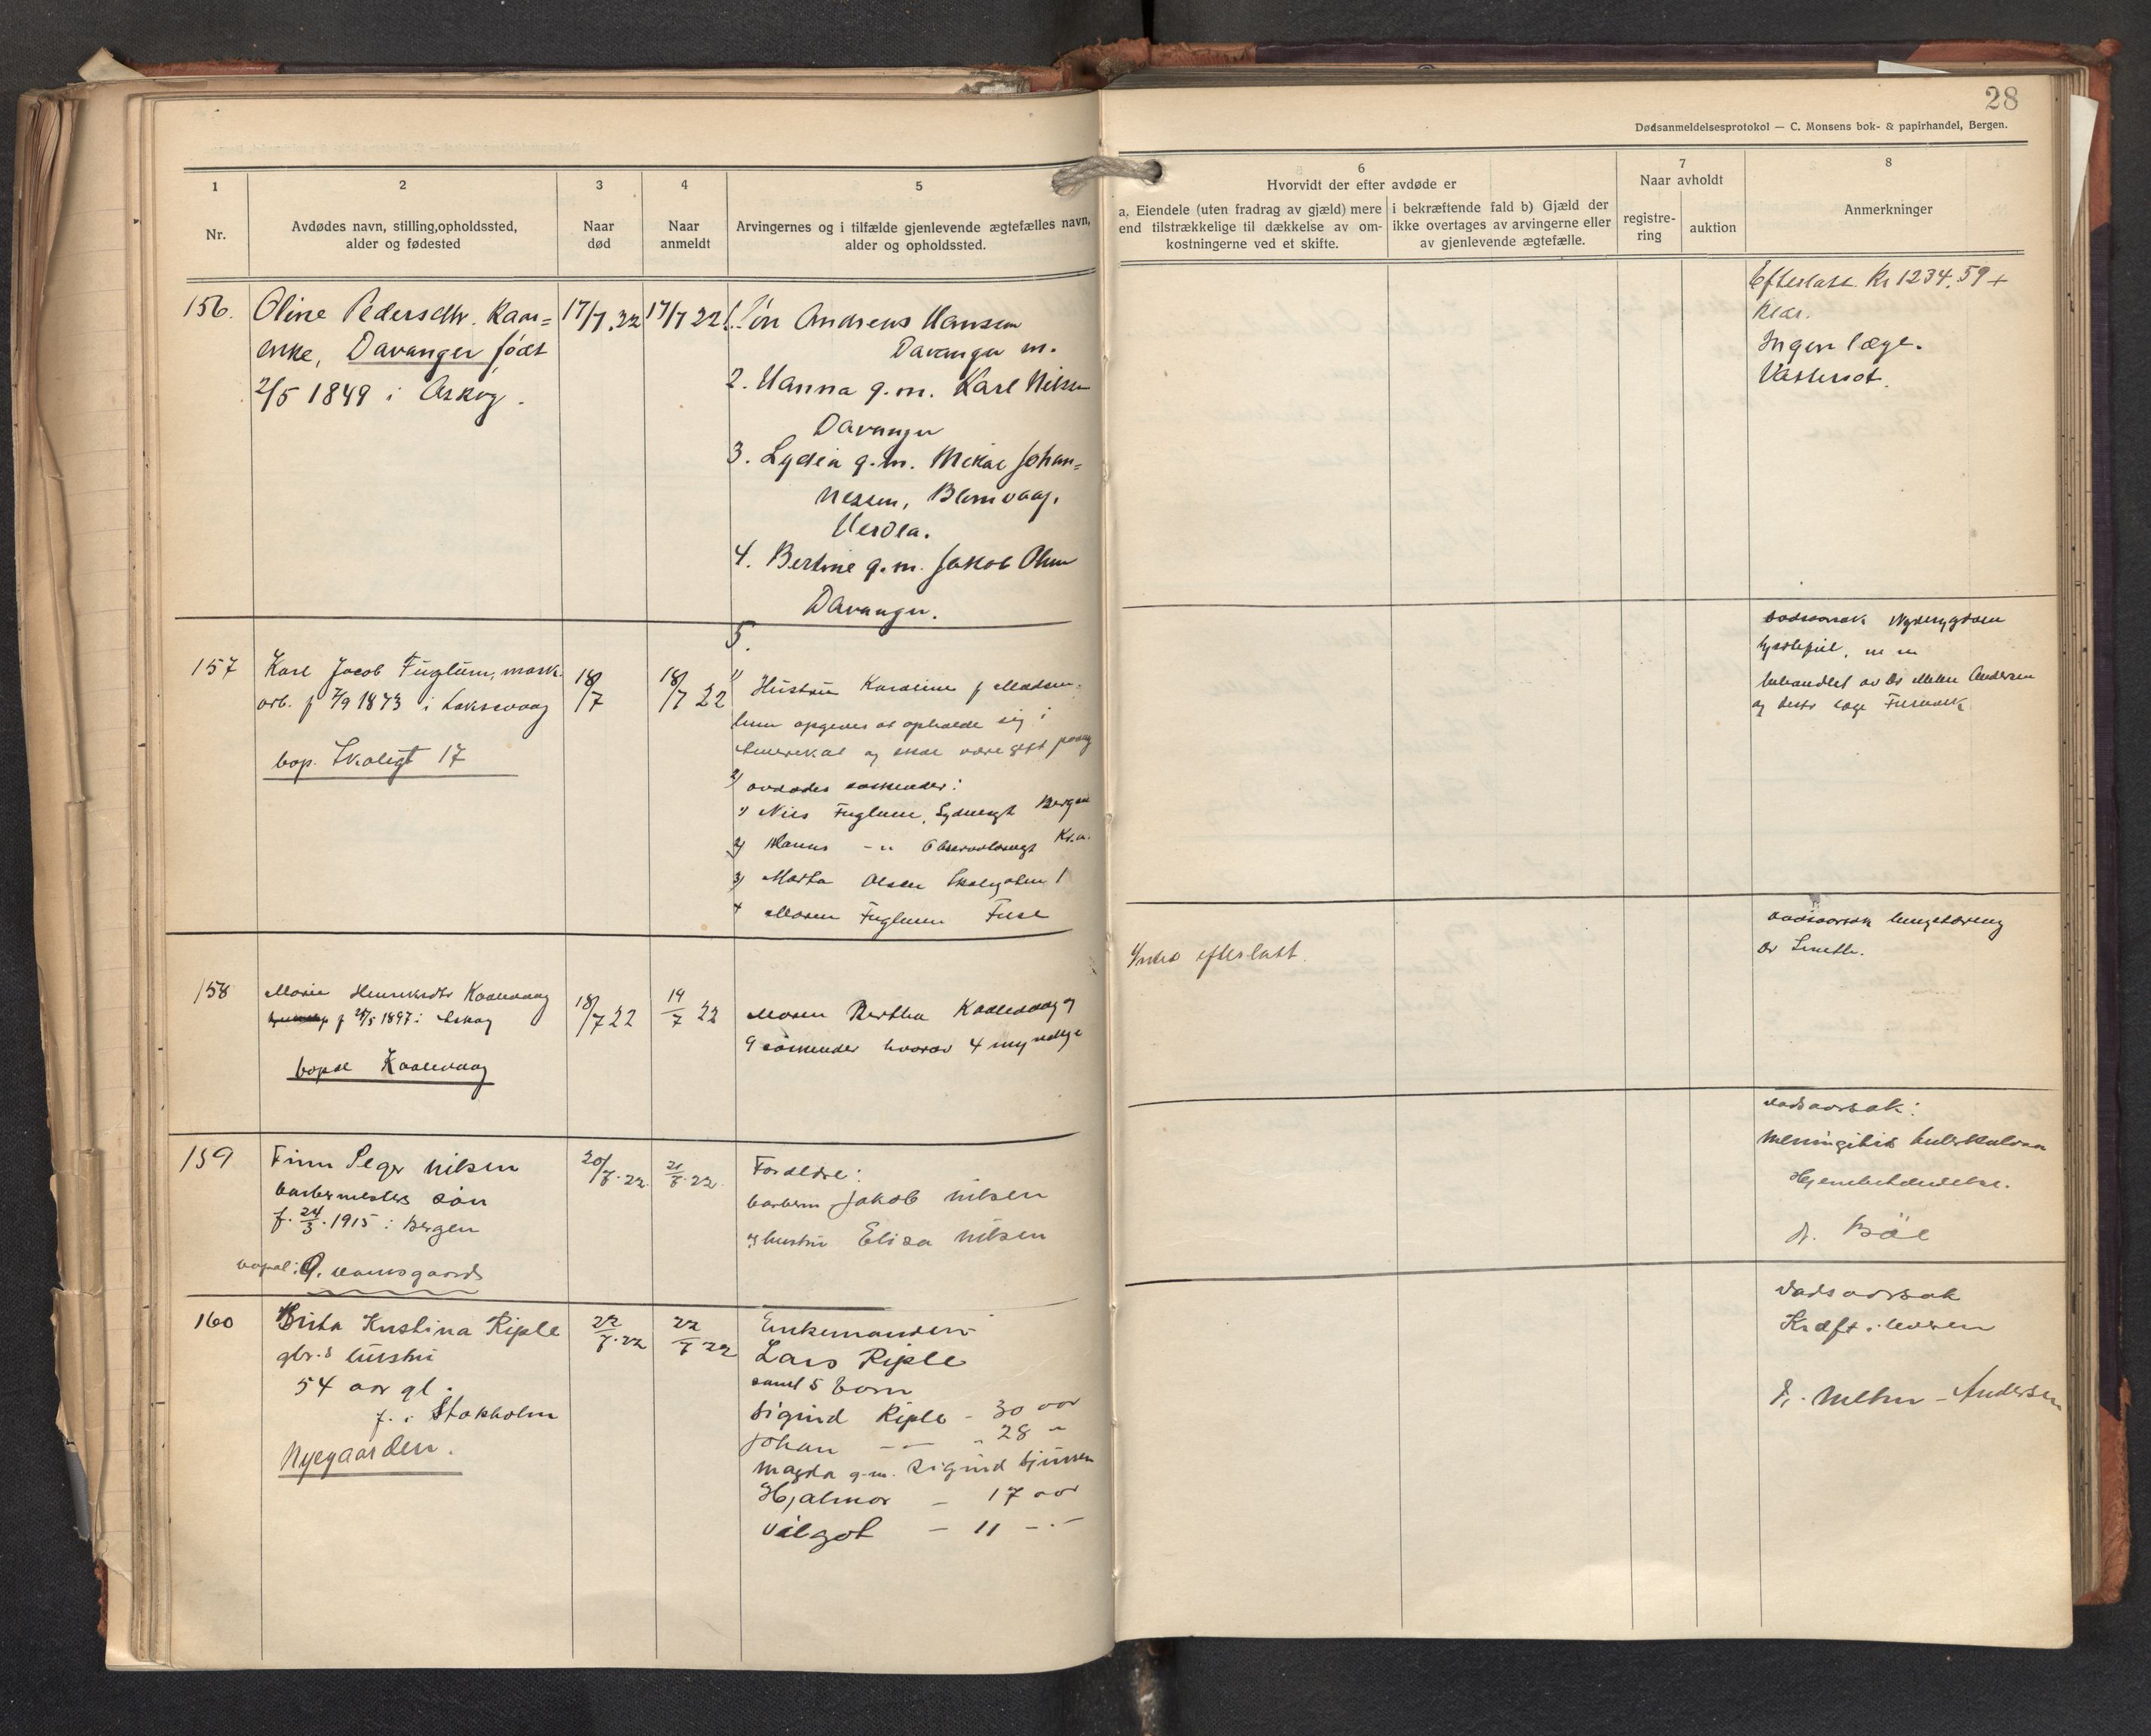 28
Dødsanmeldelsesprotokol — C. Monsens bok- & papirhandel, Bergen.
1
Nr.
2
Avdødes navn, stilling, opholdssted,
alder og fødested
3
Naar
død
4
Naar
anmeldt
5
Arvingernes og i tilfælde gjenlevende ægtefælles navn,
alder og opholdssted.
6
Hvorvidt der efter avdøde er
a. Eiendele (uten fradrag av gjæld) mere
end tilstrækkelige til dækkelse av om-
kostningerne ved et skifte.
i bekræftende fald b) Gjæld der
ikke overtages av arvingerne eller
av gjenlevende ægtefælle.
7
Naar avholdt
registre-
ring
auktion
8
Anmerkninger
156.
Oline Pedersdtr. Kaar=
enke, Davanger født
2/5 1849 i Askøy.
17/7.22
17/7 22
1. Søn Andreas Hansen
Davanger m.
2. Hanna g.m. Karl Nilsen
Davanger
3. Lydia g.m. Mikal Johan=
nessen, Blomvaag,
Herdla.
4. Bertine g.m. Jakob Olsen
Davanger.
5.
Efterlatt Kr 1234.59 +
klær.
Ingen læge.
Vattersot.
157
Karl Jacob Fuglum, mask.
arb. f 2/9 1873 i Laksevaag
bop. Skoleg 17
18/7
18/7 22
1) Hustru Karoline f Madsen.
hun opgives at opholde sig i
Amerika og skal være gift paany
2) avdødes søskender:
1) Nils Fuglum, Sydnesgt Bergen
2) Hanns -"- Observatoriegt Kr.a.
3) Marta Olsen Skolegaten 1
4 Maren Fuglum Fuse
dødsaarsak Nyresygdom
hjertefeil, m m
behandlet av Dr Meltzer Andersen
og distr læge
158
Marie Henriksdtr Kaalevaag
f 25/5 1897 i Askøy
bopæl Kaalevaag
18/7 22
19/7 22
Moren Bertha Kaalevaag og
9 søskender hvorav 4 myndige
Intet efterlatt.
dødsaarsak lungetæring
Dr Smith.
159
Finn Peger Nilsen
barbermesters søn
f. 24/3. 1915 i Bergen
bopæl: O. Damsgaard
20/7.22
21/7.22
Foreldre:
barberm Jakob Nilsen
og hustru Elisa Nilsen
Dødsaarsak:
Meningitis tuberkulosa
Hjernebetændelse.
Dr. Bøe
160
Brita Kristina Riple
gbr.s hustru
54 aar gl.
f. i Stokholm
Nyegaarden.
22/7.22
22/7 22
Enkemanden
Lars Riple
samt 5 barn
Sigurd Riple - 30 aar
Johan -"- - 28 "
Magda g.m. Sigurd
Hjalmar - 17 aar
Vilgot - 11 -"-
Dødsaarsak
Kræft i leveren
Dr. Meltzer-Andersen